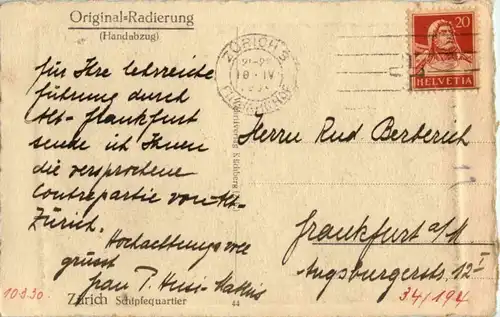 Original-Radierung
(Handabzug)
für Ihre lehrreiche
führung durch
Alt-Frankfurt
sende ich Ihnen
die versprochene
Contrepartie von Alt-
Zürich.
Hochachtungsvoll
grüsst
frau T.
10.9.30
Zürich Schipfequartier
44
ZÜRICH
HELVETIA
20
Herrn Rud Berberich
Frankfurt a/M
Augsburgerstr. 12 I
34/194